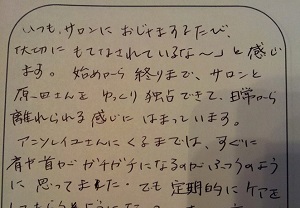 いつも、サロンにおじゃまするたび、
大切にもてなされているな〜」と感じ
ます。始めから終りまで、サロンと
原田さんをゆっくり独占できて、日常から
離れられる感じにはまっています。
アンソレイユさんにくるまでは、すぐに
肩や首がガチガチになるのがふつうのよう
に思ってました。でも定期的にケアを